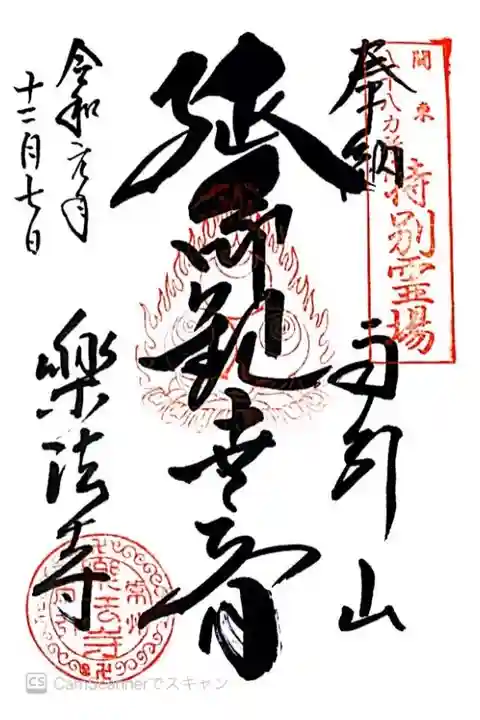 関東
八十八カ所
特別霊場
奉納
雨引山
延命観世音
令和元年
十二月七日
樂法寺
常州
CS CamScannerでスキャン